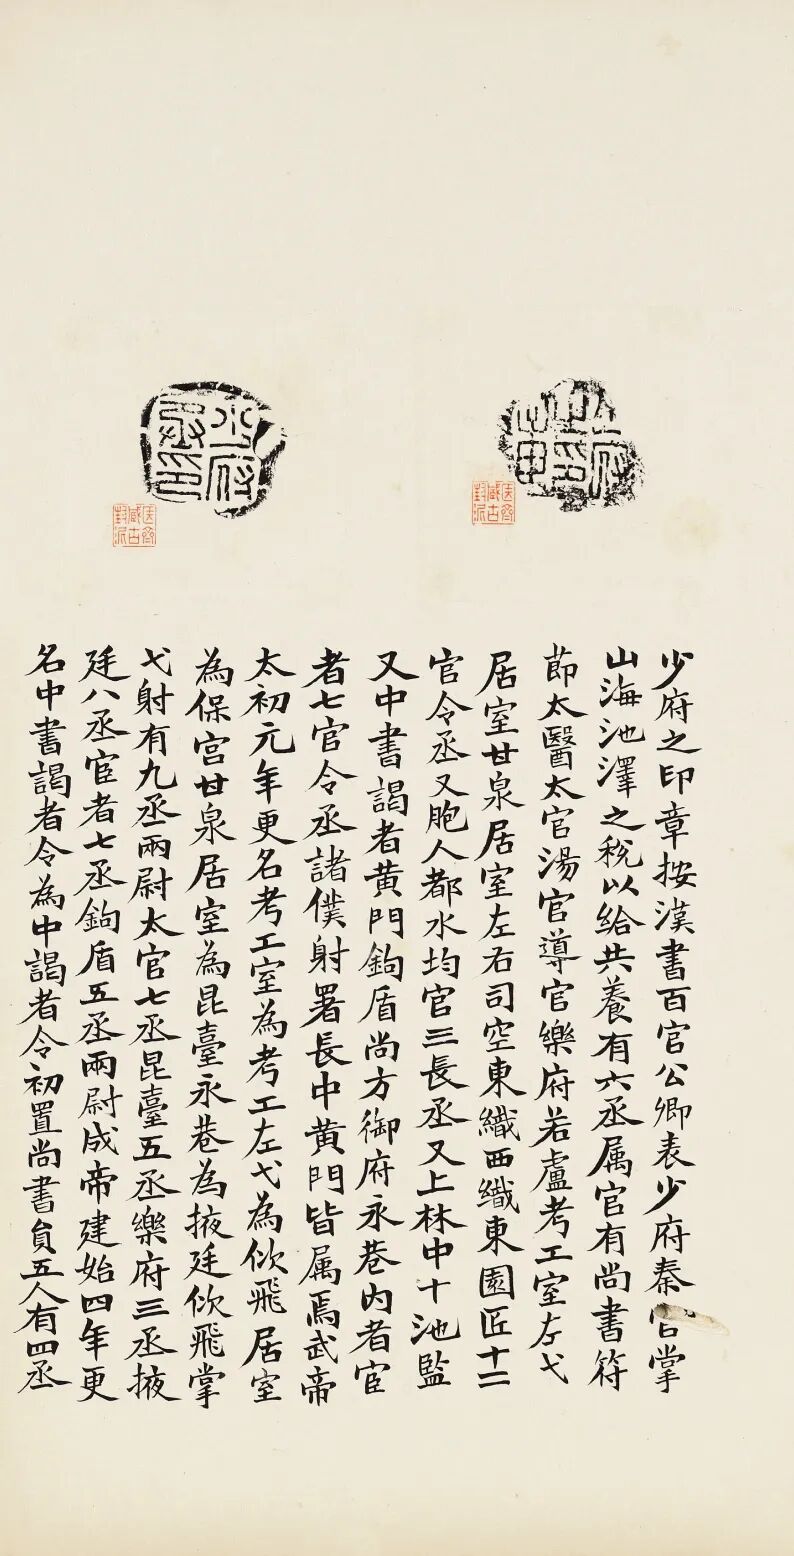 少府之印章
少府丞印
少府之印章按漢書百官公卿表少府秦官掌
山海池澤之稅以給共養有六丞属官有尚書符
節太醫太官湯官導官樂府若盧考工室左弋
居室甘泉居室左右司空東織西織東園匠十二
官令丞又胞人都水均官三長丞又上林中十池監
又中書謁者黄門鉤盾尚方御府永巷内者宦
者七官令丞諸僕射署長中黄門皆属焉武帝
太初元年更名考工室為考工左弋為佽飛居室
為保宫甘泉居室為昆臺永巷為掖廷佽飛掌
弋射有九丞兩尉太官七丞昆臺五丞樂府三丞掖
廷八丞宦者七丞鉤盾五丞兩尉成帝建始四年更
名中書謁者令為中謁者令初置尚書員五人有四丞